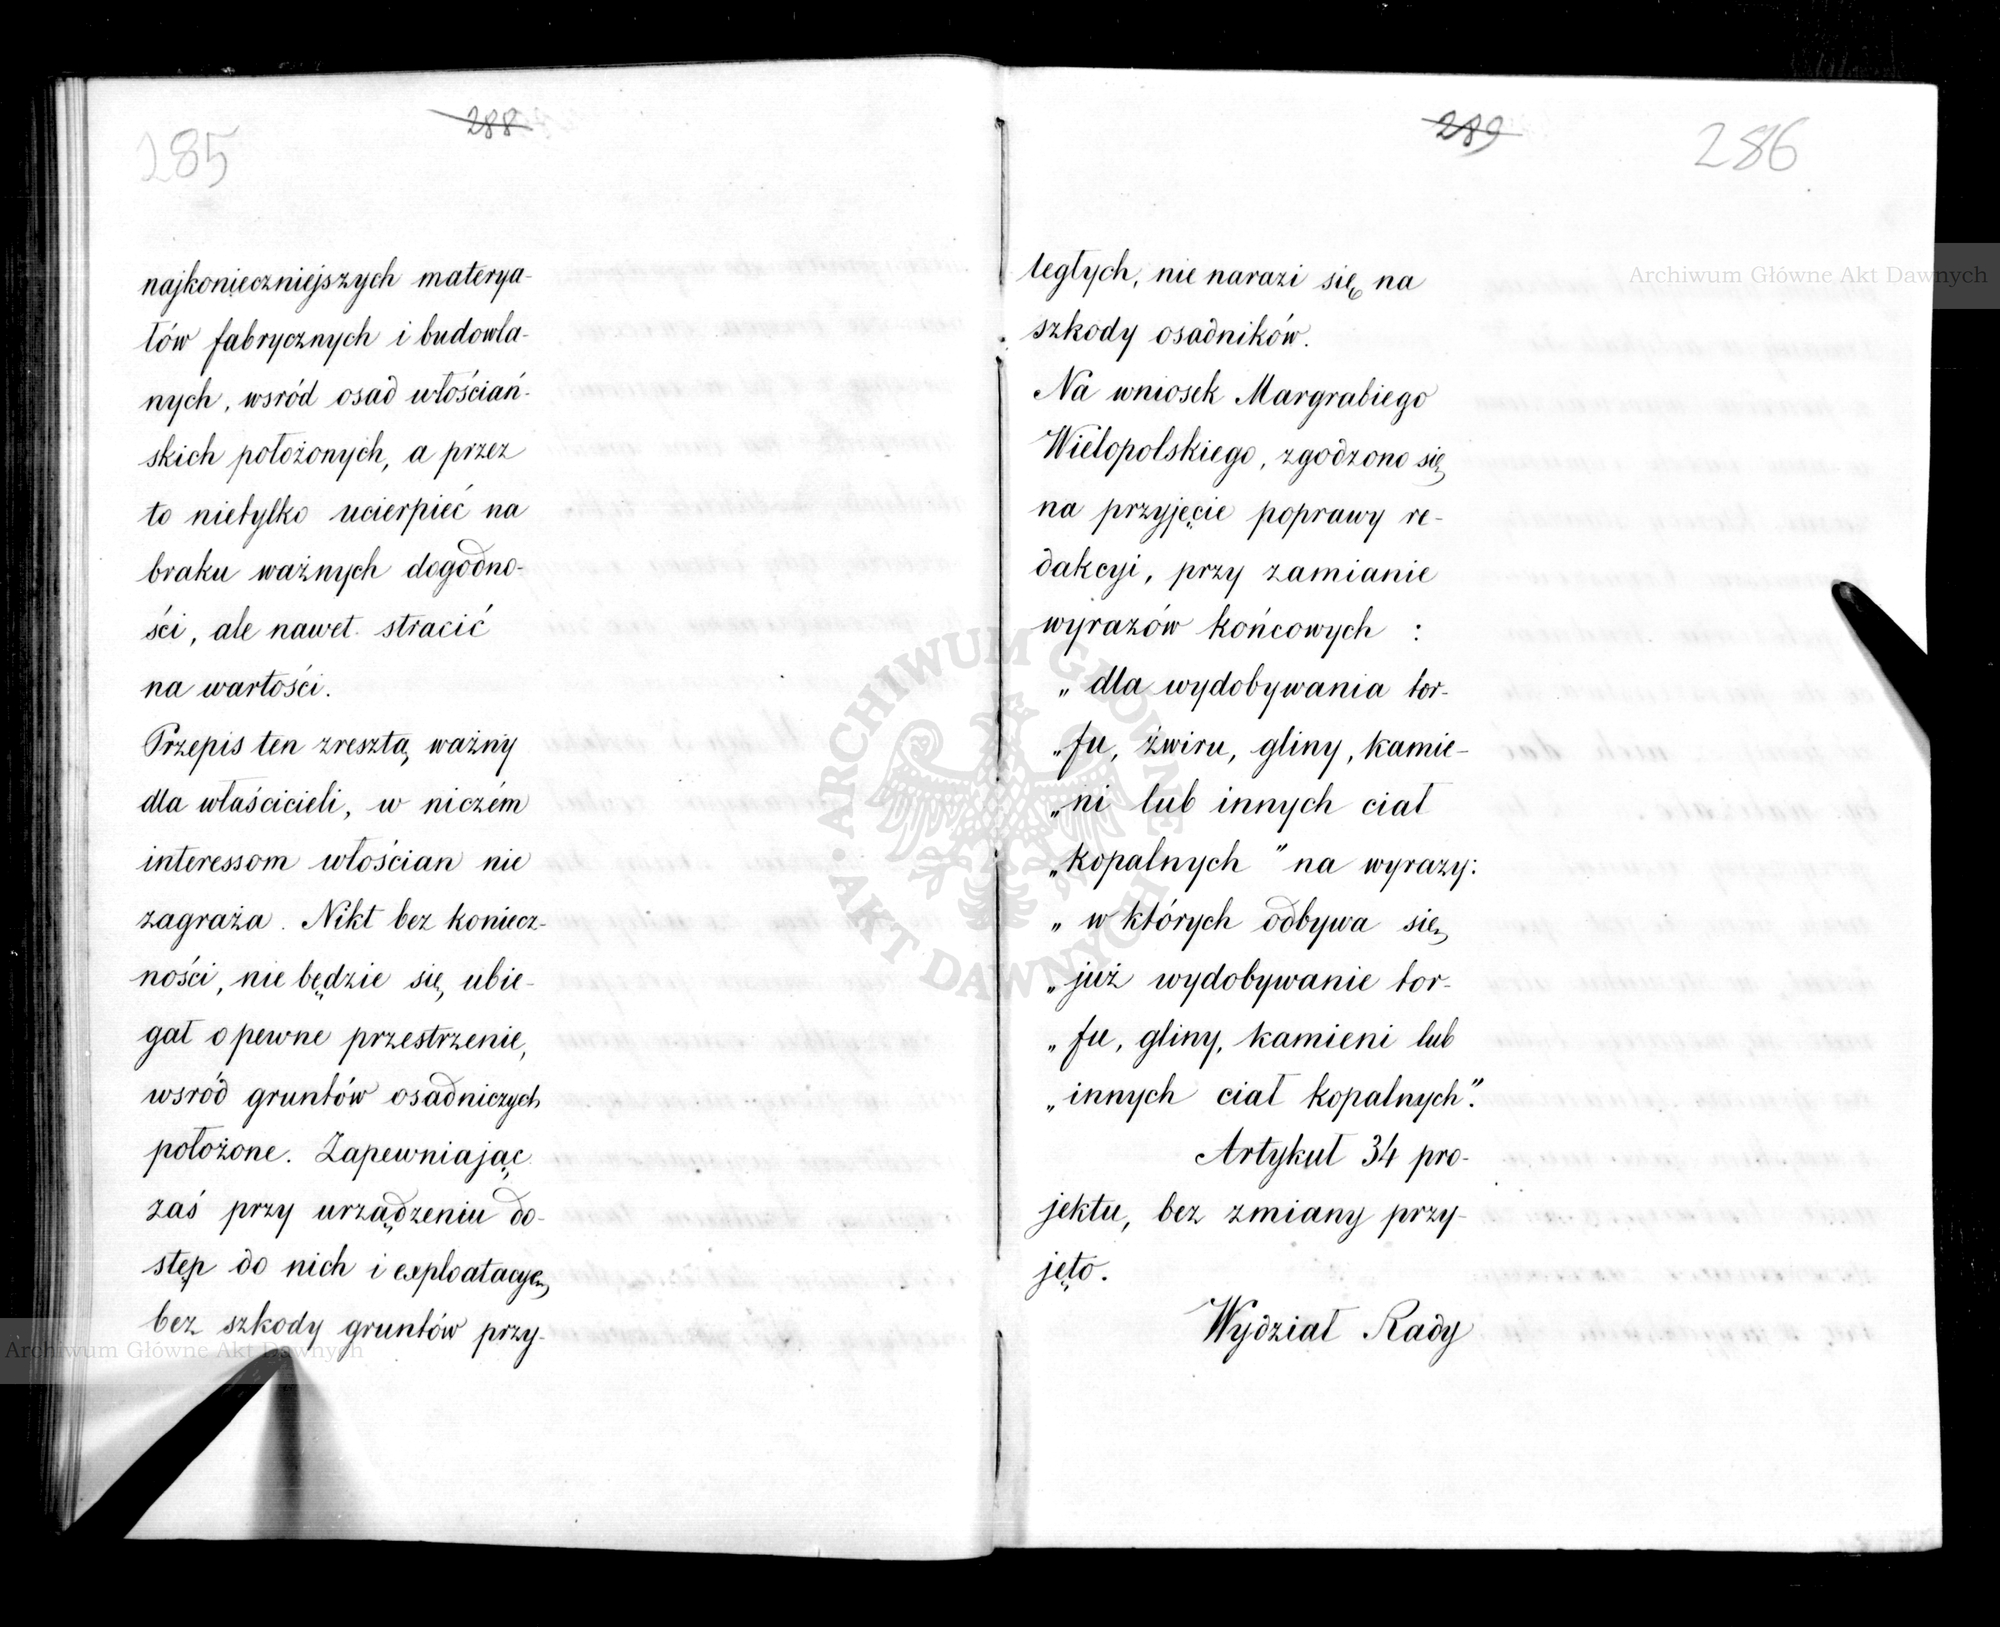 285
288
najkonieczniejszych materya-
łów fabrycznych i budowla-
nych, wsród osad włościań-
skich położonych, a przez
to nietylko ucierpieć na
braku ważnych dogodno-
ści, ale nawet stracić
na wartości.
Przepis ten zresztą, ważny
dla właścicieli, w niczém
interessom włościan nie
zagraża. Nikt bez koniecz-
ności, nie będzie się, ubie-
gał o pewne przestrzenie,
wsród gruntów osadniczych
położone. Zapewniając
zaś przy urządzeniu do-
stęp do nich i exploatacyę,
bez szkody gruntów przy-
289
286
ległych, nie narazi się na
szkody osadników.
Na wniosek Margrabiego
Wielopolskiego, zgodzono się
na przyjęcie poprawy re-
dakcyi, przy zamianie
wyrazów końcowych :
„ dla wydobywania tor-
„fu, żwiru, gliny, kamie-
„ni lub innych ciał
„kopalnych " na wyrazy:
„ w których odbywa się
„już wydobywanie tor-
„fu, gliny, kamieni lub
„innych ciał kopalnych".
Artykuł 34 pro-
jektu, bez zmiany przy-
jęto.
Wydział Rady
Archiwum Główne Akt Dawnych
Archiwum Główne Akt Dawnych
ARCHIWUM GŁÓWNE • AKT DAWNYCH •